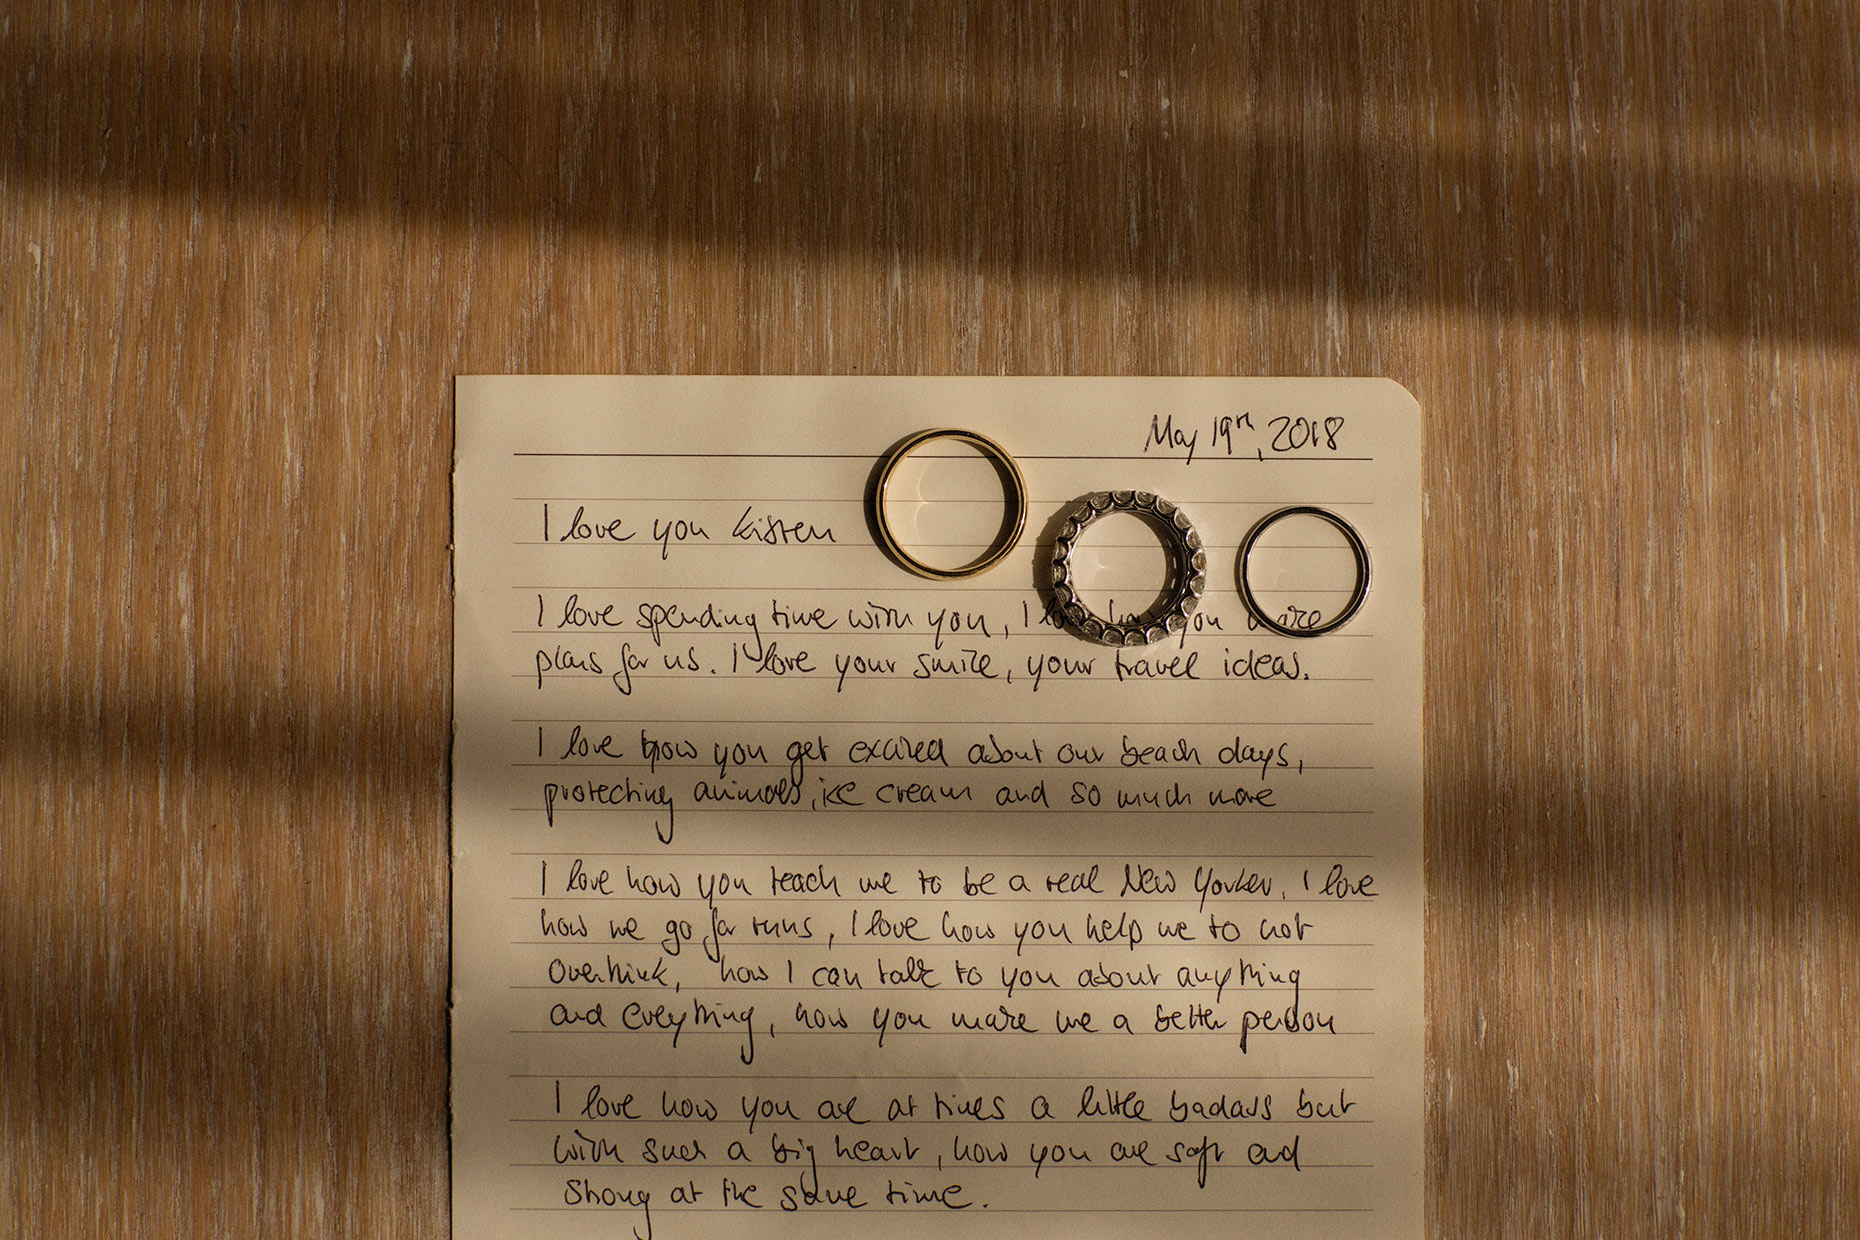 May 19th, 2018
I love you Kirsten
I love spending time with you, I love how you make
plans for us. I love your smile, your travel ideas.
I love how you get excited about our beach days,
protecting animals, ice cream and so much more
I love how you teach me to be a real New Yorker. I love
how we go for runs, I love how you help me to not
overthink, how I can talk to you about anything
and everything, how you make me a better person
I love how you are at times a little badass but
with such a big heart, how you are soft and
strong at the same time.